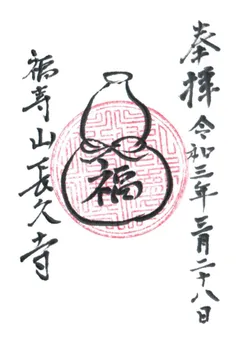 奉拝 令和三年三月二十八日
福
福寿山長久寺